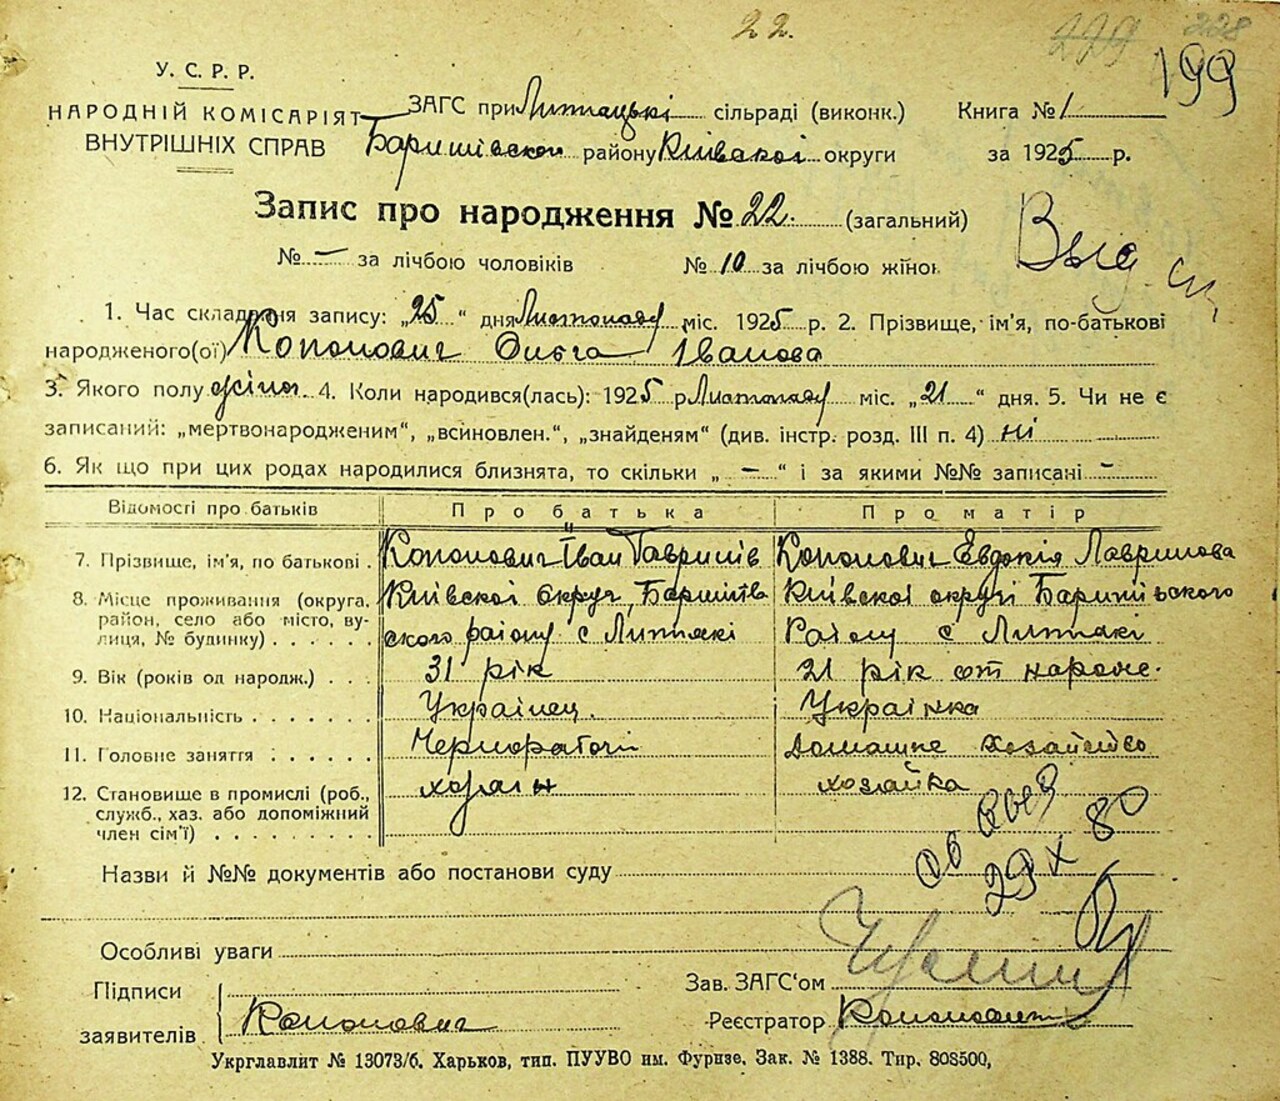 22.
229 228
199
У. С. Р. Р.
НАРОДНІЙ КОМІСАРІЯТ
ВНУТРІШНІХ СПРАВ
ЗАГС при Литвяцькі сільраді (виконк.)
Баришівскои району Київскоі округи
Книга № 1
за 1925 р.
Запис про народження № 22. (загальний)
№ — за лічбою чоловіків № 10 за лічбою жінок
Выд.
1. Час складання запису: „25“ дня Листопаду міс. 1925 р. 2. Прізвище, ім'я, по-батькові
народженого(ої) Кононович Ольга Іванова
3. Якого полу жіноч. 4. Коли народився(лась): 1925 р. Листопаду міс. „21“ дня. 5. Чи не є
записаний: „мертвонародженим“, „всиновлен.“, „знайденям“ (див. інстр. розд. III п. 4) ні
6. Як що при цих родах народилися близнята, то скільки „ — “ і за якими №№ записані —
Відомості про батьків Про батька Про матір
7. Прізвище, ім'я, по батькові . Кононович Іван Гаврилів Кононович Евдокія Лавринова
8. Місце проживання (округа, район, село або місто, вулиця, № будинку) . . . . . Київскоі округи, Баришівського району с Литвякі Київскоі округі Баришівського Району с Литвякі
9. Вік (років од народж.) . . . 31 рік 21 рік от народж.
10. Національність . . . . . . . Українец. Українка
11. Головне заняття . . . . . . Чернорабочій Домашнє хозайство
12. Становище в промислі (роб., служб., хаз. або допоміжний член сім'ї) . . . . . . . . . хозяін хозайка
29 X 80
Назви й №№ документів або постанови суду
Особливі уваги
Підписи
заявителів
Кононович
Зав. ЗАГС'ом
Реєстратор
Укрглавліт № 13073/б. Харьков, тип. ПУУВО им. Фрунзе. Зак. № 1388. Тир. 808500,